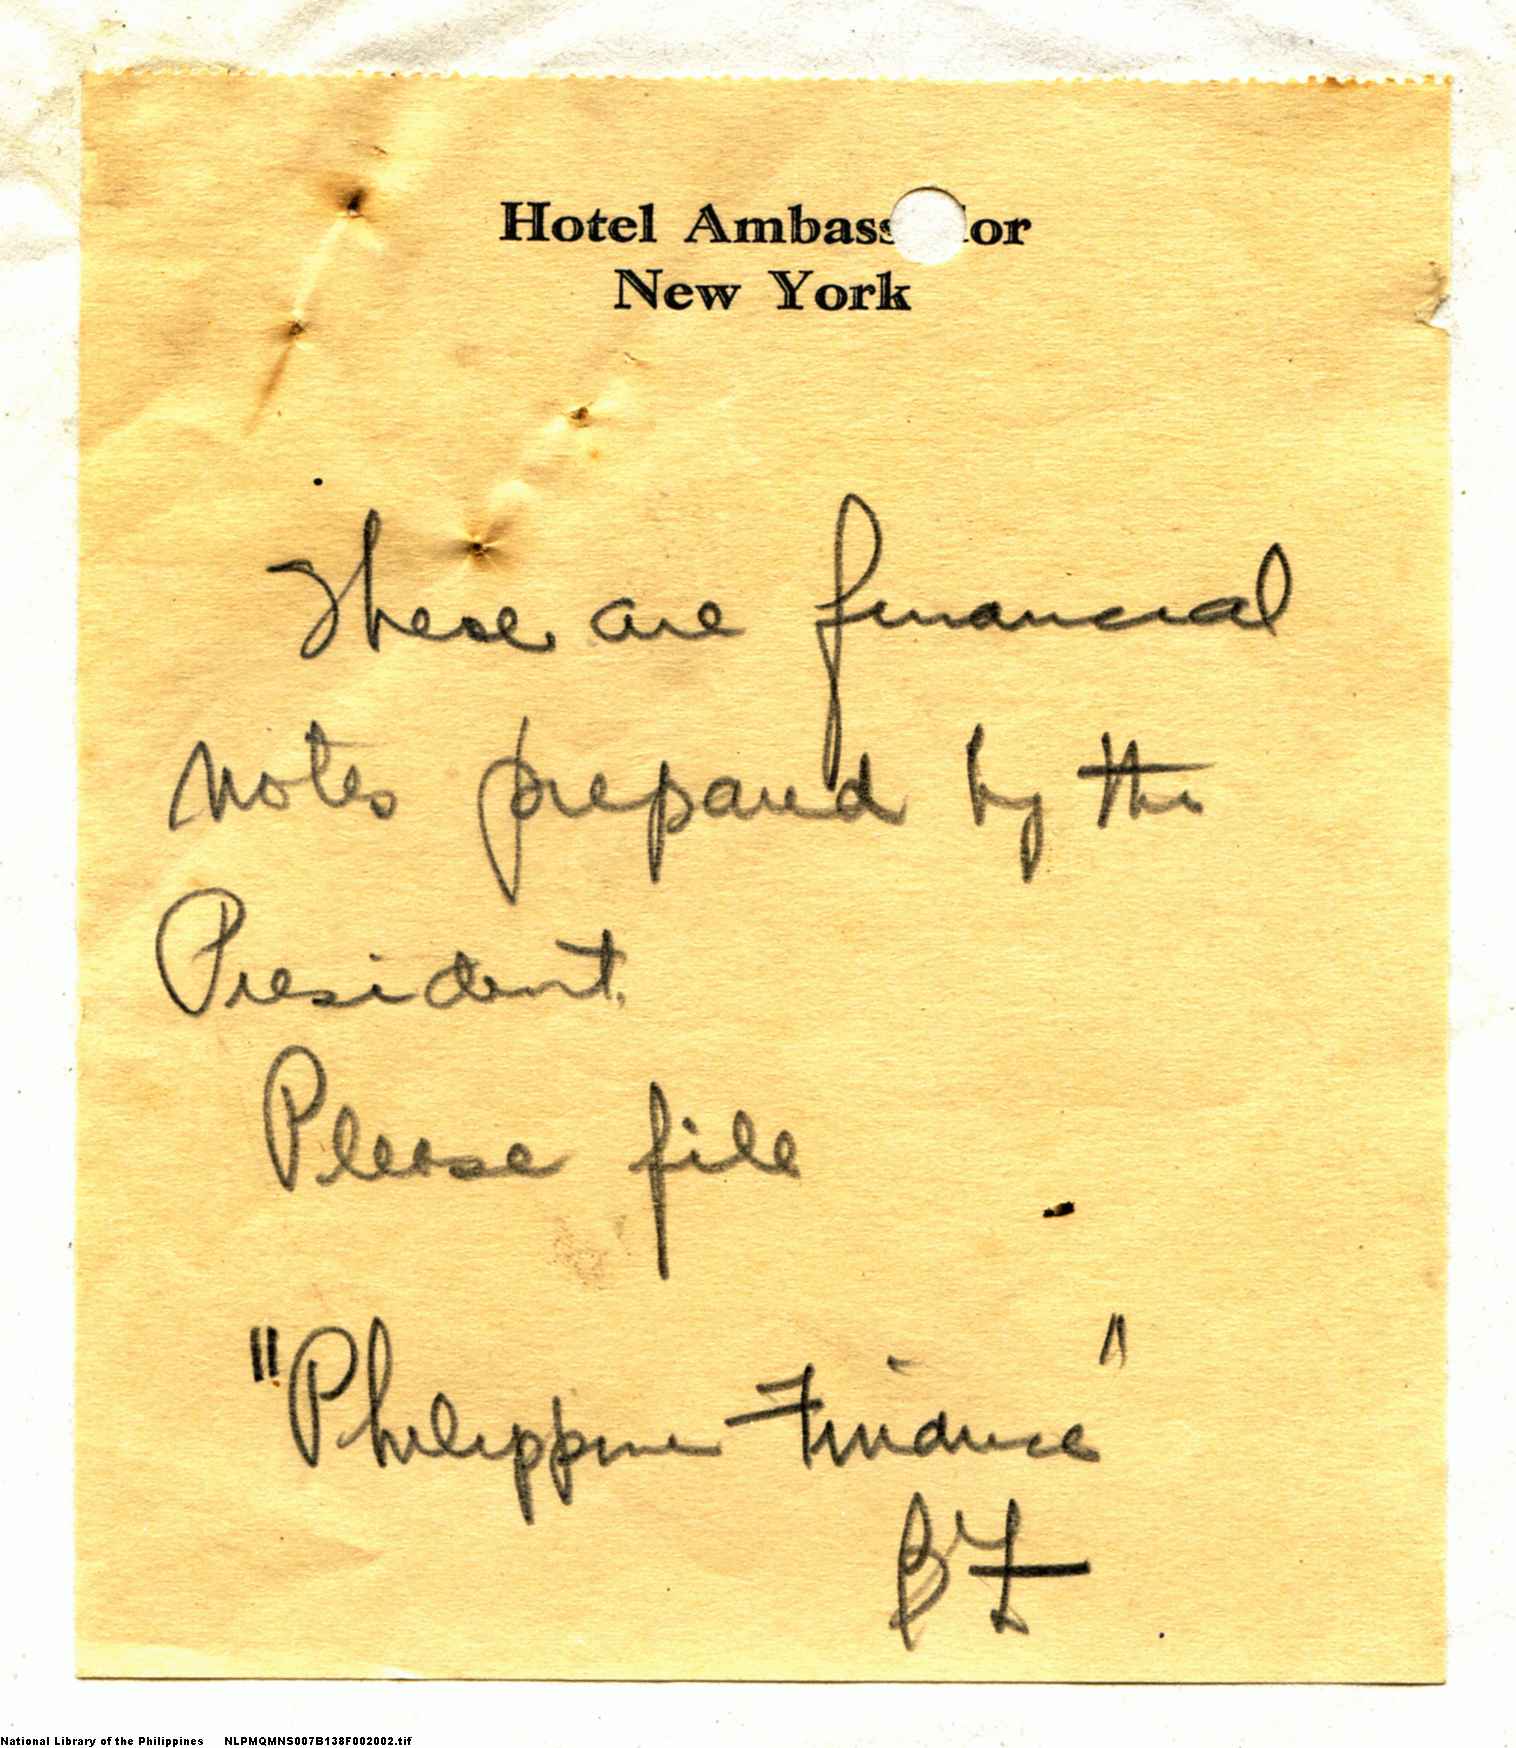 Hotel Ambassador
New York
These are financial
notes prepared by the
President.
Please file
"Philippine Finance"
National Library of the Philippines NLPMQMNS007B138F002002.tif